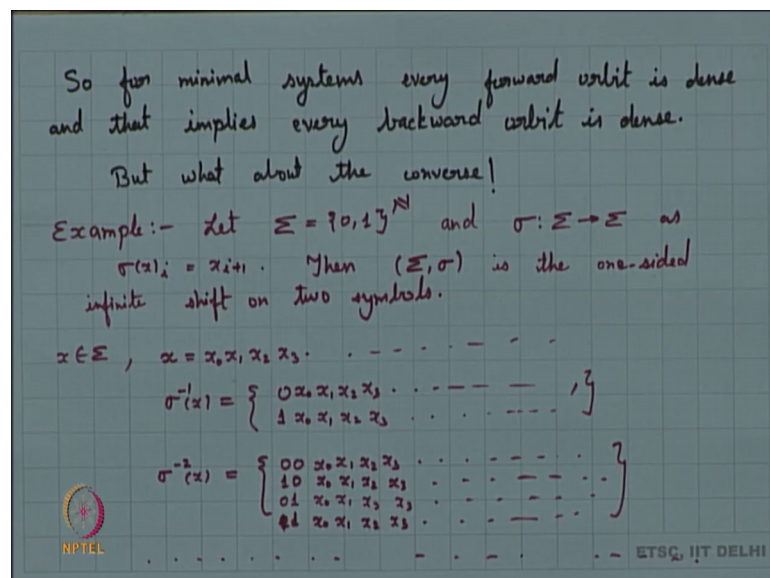 So for minimal systems every forward orbit is dense
and that implies every backward orbit is dense.
But what about the converse!
Example:- Let Σ = {0,1}^ℕ and σ: Σ→Σ as
σ(x)ᵢ = xᵢ₊₁. Then (Σ,σ) is the one-sided
infinite shift on two symbols.
x∈Σ, x = x₀x₁x₂x₃. . - - . - - .
σ⁻¹(x) = { 0x₀x₁x₂x₃ . . . - - - ,}
1x₀x₁x₂x₃ . . . . - - -
σ⁻²(x) = { 00 x₀x₁x₂x₃ . . . . - - . . }
10 x₀x₁x₂x₃ . . . - - - . .
01 x₀x₁x₂x₃ . . . - - - . .
11 x₀x₁x₂x₃ . . . - - .
. . . . . . . . - . - . - . . -
NPTEL
ETSC, IIT DELHI